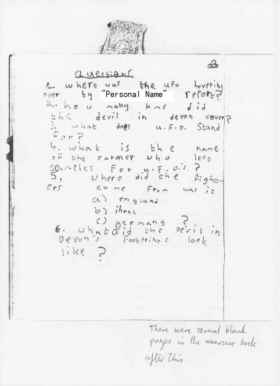 Questions
1. where was the ufo hovring
over by "Personal Name" report?
2. how many kms did
the devil in devon cover?
3. what does u.F.o. Stand
For?
4. what is the name
of the Farmer who
For u.F.o's?
5, where did the
come From was it
a) england
b)
c) germany ?
6. what did the Devils in
Devon's look
like ?
There were several blank
pages in the exercise book
after this.